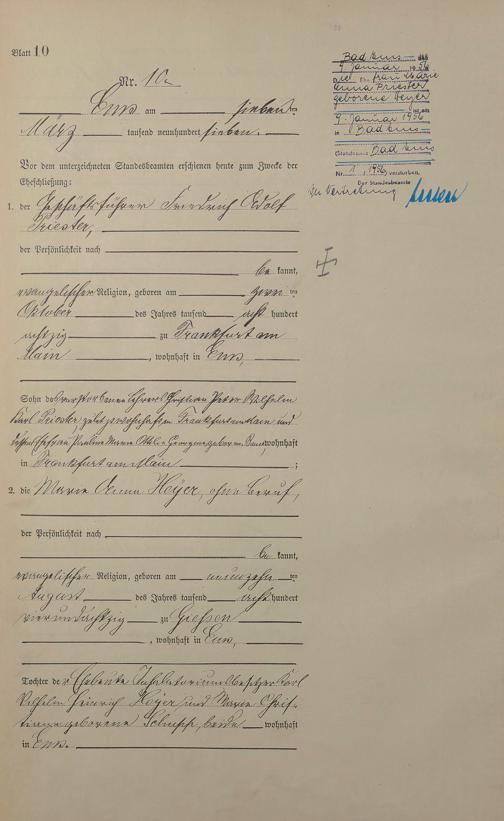 Blatt 10
Nr. 10
Ems am sieben ten
März tausend neunhundert sieben.
Vor dem unterzeichneten Standesbeamten erschienen heute zum Zwecke der
Eheschließung:
1. der Geschäftsführer Friedrich Adolf
Priester,
der Persönlichkeit nach
be kannt,
evangelischer Religion, geboren am zehn ten
Oktober des Jahres tausend acht hundert
achtzig zu Frankfurt am
Main, wohnhaft in Ems,
Sohn des verstorbenen Lehrers Christian Peter Wilhelm
Karl Priester, zuletzt wohnhaft in Frankfurt am Main und
dessen Ehefrau Pauline Marie geborene wohnhaft
in Frankfurt am Main;
2. die Marie Anna Heyer, ohne Beruf,
der Persönlichkeit nach
be kannt,
evangelischer Religion, geboren am neunzehn ten
August des Jahres tausend acht hundert
vierundachtzig zu Giessen
, wohnhaft in Ems,
Tochter der Eheleute Inhalatoriumbesitzer Karl
Wilhelm Heinrich Heyer und Marie Chris-
tiane geborene beide wohnhaft
in Ems.
Bad Ems, den
9. Januar 1956
Die Ehefrau Marie
Anna Priester
geborene Heyer
ist am
9. Januar 1956
in Bad Ems
Standesamt Bad Ems
Nr. 1956 verstorben.
Der Standesbeamte
In Vertretung